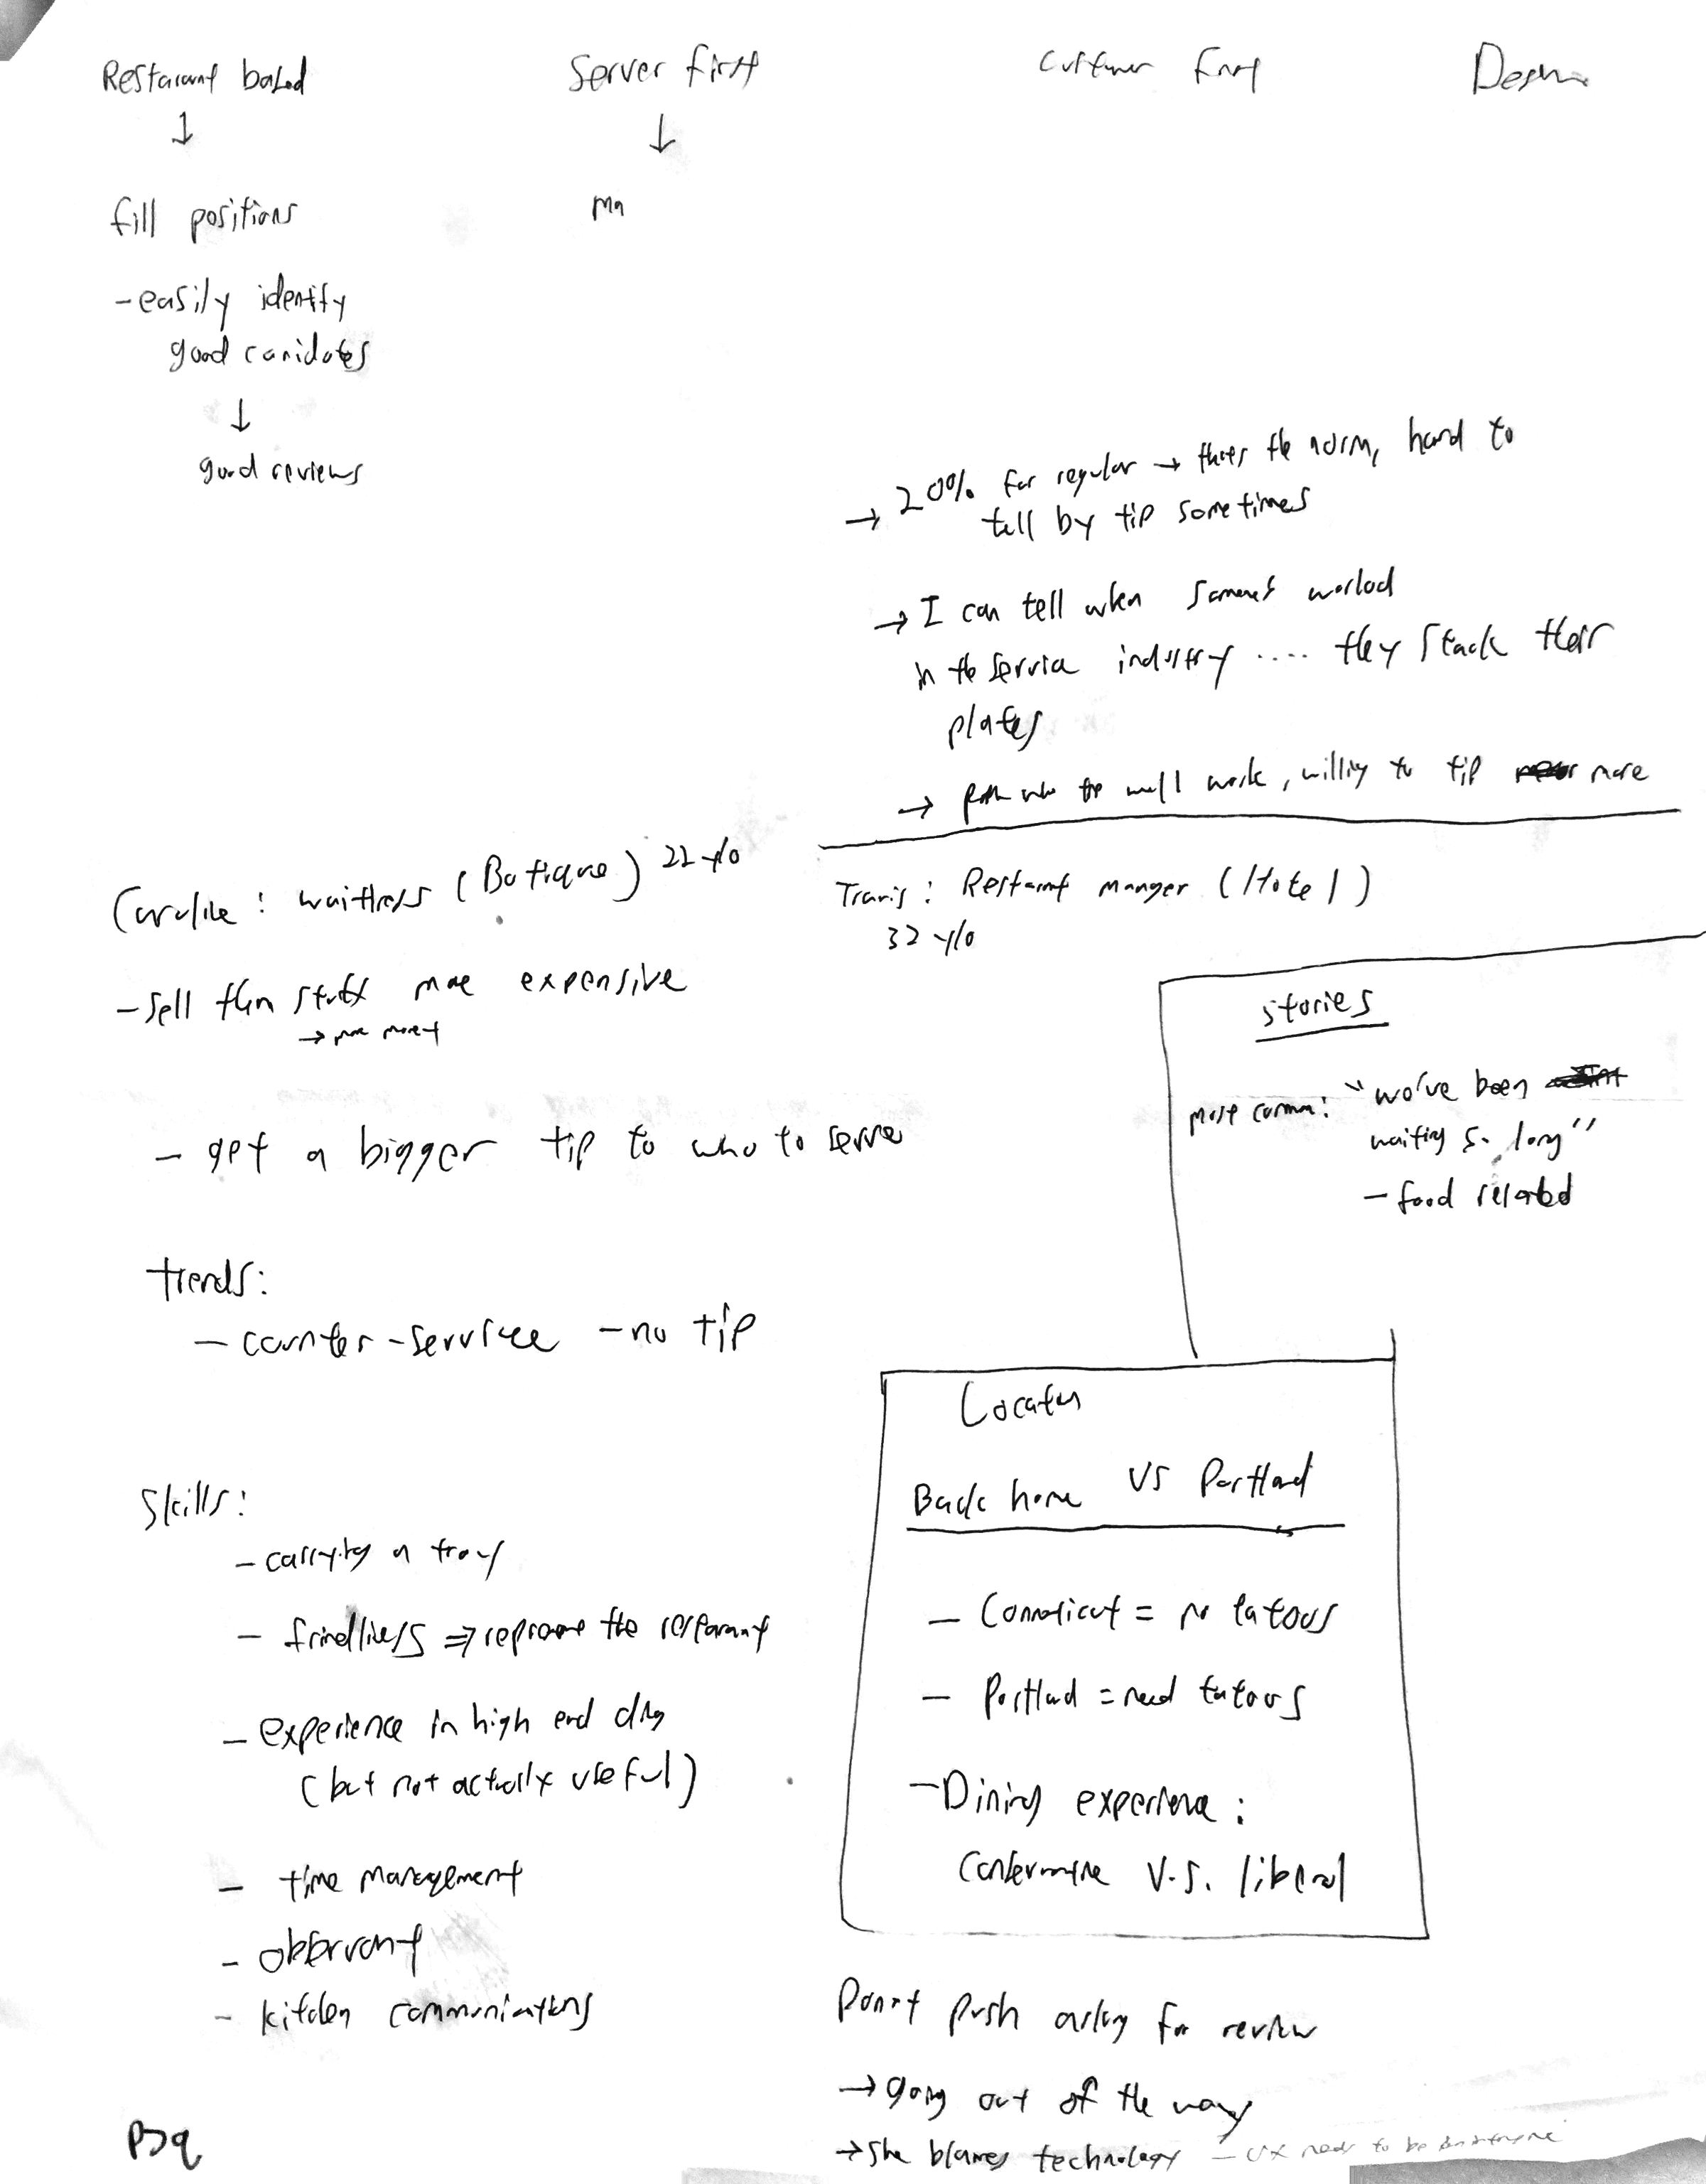 Restarant based
↓
fill positions
-easily identify
good canidates
↓
good reviews
Server first
↓
Ma
Customer First
Design
→ 20% for regular → thats the norm, hard to
tell by tip sometimes
→ I can tell when someones worked
in the service industry .... they stack their
plates
→ well work, willing to tip more
Caroline: waitress (Botique) 22 y/o
- Sell them stuff more expensive
→ more money
- get a bigger tip to who to serve
trends:
- counter-service - no tip
Skills:
- carrying a tray
- frindliness ⇒ represent the restarant
- experience in high end
(but not actually useful)
- time management
- observant
- kitchen communications
Travis: Restarant manger (Hotel)
32 y/o
stories
most common: "we've been
waiting so long"
- food related
Location
Back home VS Portland
- Conneticut = no tatoos
- Portland = need tatoos
- Dining experience:
Conservative V.S. liberal
Don't push asking for review
→ going out of the way
→ she blames technology - UX needs to be